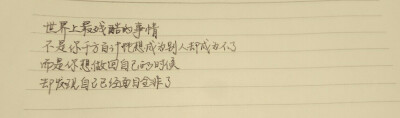 世界上最残酷的事情
不是你千方百计地想成为别人却成为不了
而是你想做回自己的时候
却发现自己已经面目全非了